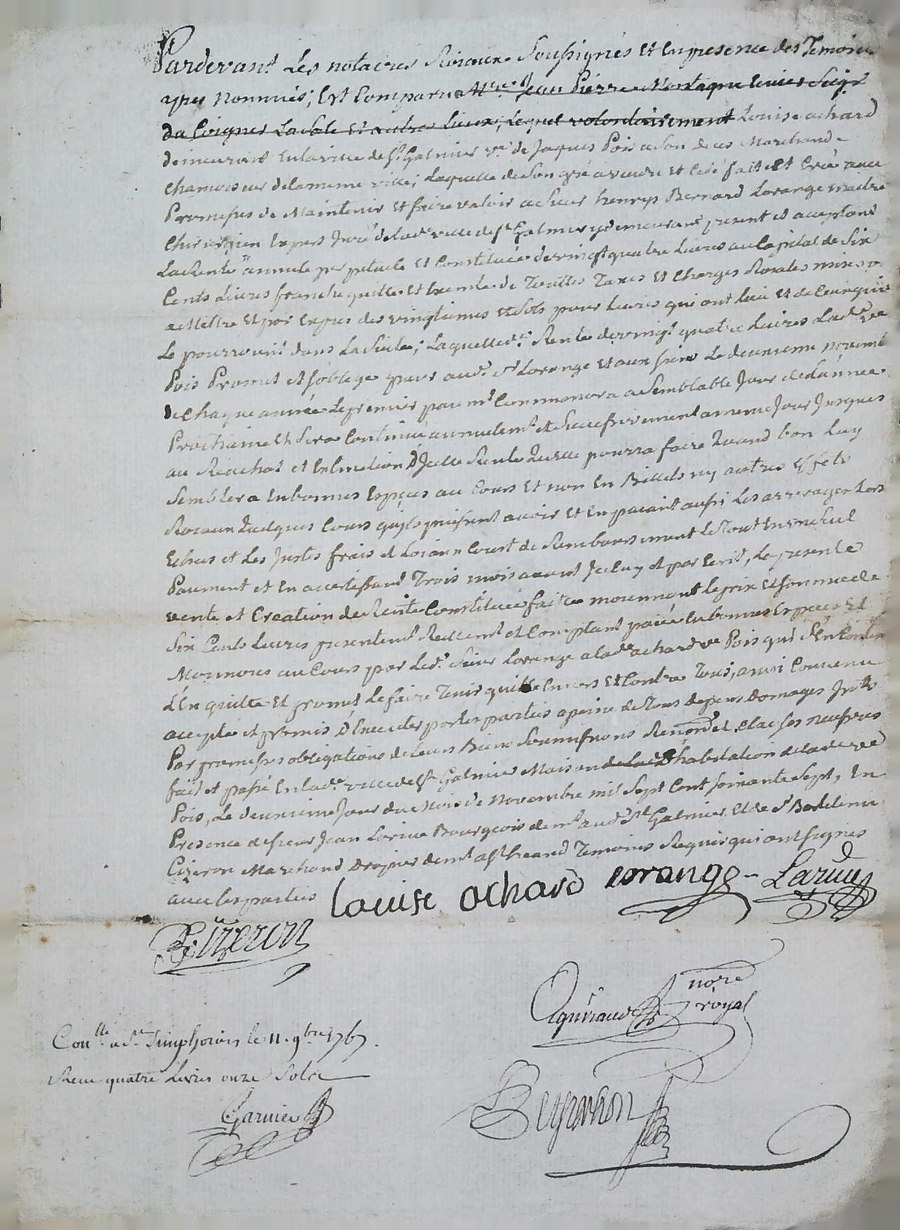 Pardevant Les notaires Roiaux Soussignés Et En presence des Temoins
apres Nommés, Est Comparu Mre Jean Pierre Montaque Seigr
du Laale Et autres Lieux, Lequel volontairement Louise achard
demeurant En la ville de St Galmier vve de Jaques Pois a son deces Marchand
Chamoiseur de la meme ville; Laquelle de Son gré a vendu et Cedé fait Et Créé avec
Promesses de Maintenir Et faire valoir a Sieur henrys Bernard Lorange maitre
Chirurgien Expert Juré de lad. ville de St Galmier y demeurant present et aceptant
La Rente annuele perpetuele Et Constituée de vingt quatre Livres au Capital de Six
Cents Livres franche quitte Et Exemte de Touttes Taxes Et Charges Roiales mises ou
a Mettre Et par Expres des vingtiemes et Sols pour Livres qui ont Lieu Et de Ceux qui
Le pourroient dans La Suite; Laquelle de Rente de vingt quatre Livres Lade vve
Pois Promet et Soblige paier aud. Sr Lorange Et aux Siens Le deuxieme novembre
de Chaque année Le premier paiemt Commencera a Semblable Jour de Lannée
Prochaine Et Sera Continué annuelemt et Successivement a meme Jour Jusques
au Rachat et Extinction d'Icelle Rente quelle pourra faire quand bon Luy
Semblera En bonnes Especes au Cours Et non En Billets ny autres Effets
Roiaux quelques Cours quils puissent avoir Et En paiant aussi Les arrerages Lors
Echus et Les Justes frais et Loiaux Coust de Remboursement Le Tout En un Seul
Paiement et En avertissant Trois mois avant Iceluy et par Ecrit, La presente
vente et Creation de Rente Constituée faite moiennant Le prix Et Somme de
Six Cents Livres presentemt Reelemt et Comptant paiée En bonnes Especes Et
Monnoies au Cours par Led. Sieur Lorange a lade achard vve Pois qui S'En Contente
L'En quitte Et promet Le faire Tenir quitte Envers Et Contre Tous, ainsi Convenu
accepté et promis d'Executer par les parties a peine de Tous depens Domages Interets
Par promesses obligations de Leurs Biens Soumissions Renonons Et clauses necessres
fait et passé En lade ville de St Galmier Maison habitation de lade vve
Pois, Le deuxieme Jour du Mois de Novembre mil Sept Cent Soixante Sept, En
Presence de Sieur Jean Larue Bourgeois demt aud. St Galmier, Et de Sr Bartelemi
Cizeron Marchand demt a St Temoins Requis qui ont Signés
avec les parties Louise achard Lorange Larue
Cizeron
notre
royal
Conlle a St Simphorien le 11. 9bre 1767.
Receu quatre Livres onze Sols
Garnier